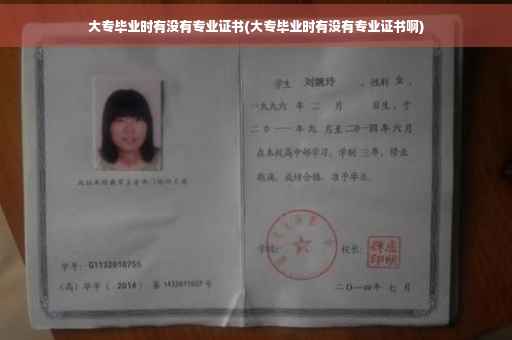 大专毕业时有没有专业证书(大专毕业时有没有专业证书啊)
学生 刘婉玲 ，性别 女 ，
一九九六 年 二 月 日生，于
二〇一一 年 九 月至 二〇一四 年 六 月
在本校高中部学习，学制 三 年，修业
期满，成绩合格，准予毕业。
学号： G1132010755
（高）毕字（ 2014 ）第 1432011027 号
学校：
校长：
二〇一四年 七 月